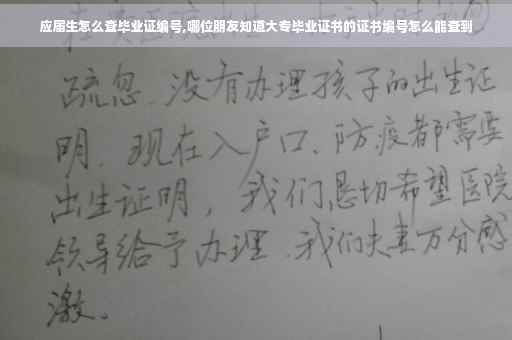 应届生怎么查毕业证编号,哪位朋友知道大专毕业证书的证书编号怎么能查到
疏忽、没有办理孩子的出生证
明、现在入户口、防疫都需要
出生证明，我们恳切希望医院
领导给予办理、我们夫妻万分感
激。